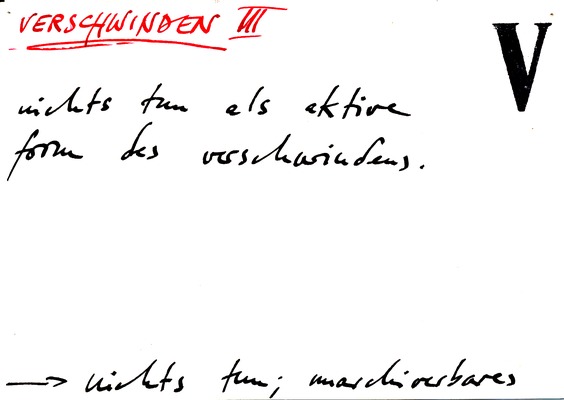 VERSCHWINDEN III
V
nichts tun als aktive
form des verschwindens.
→ nichts tun; unarchivierbares